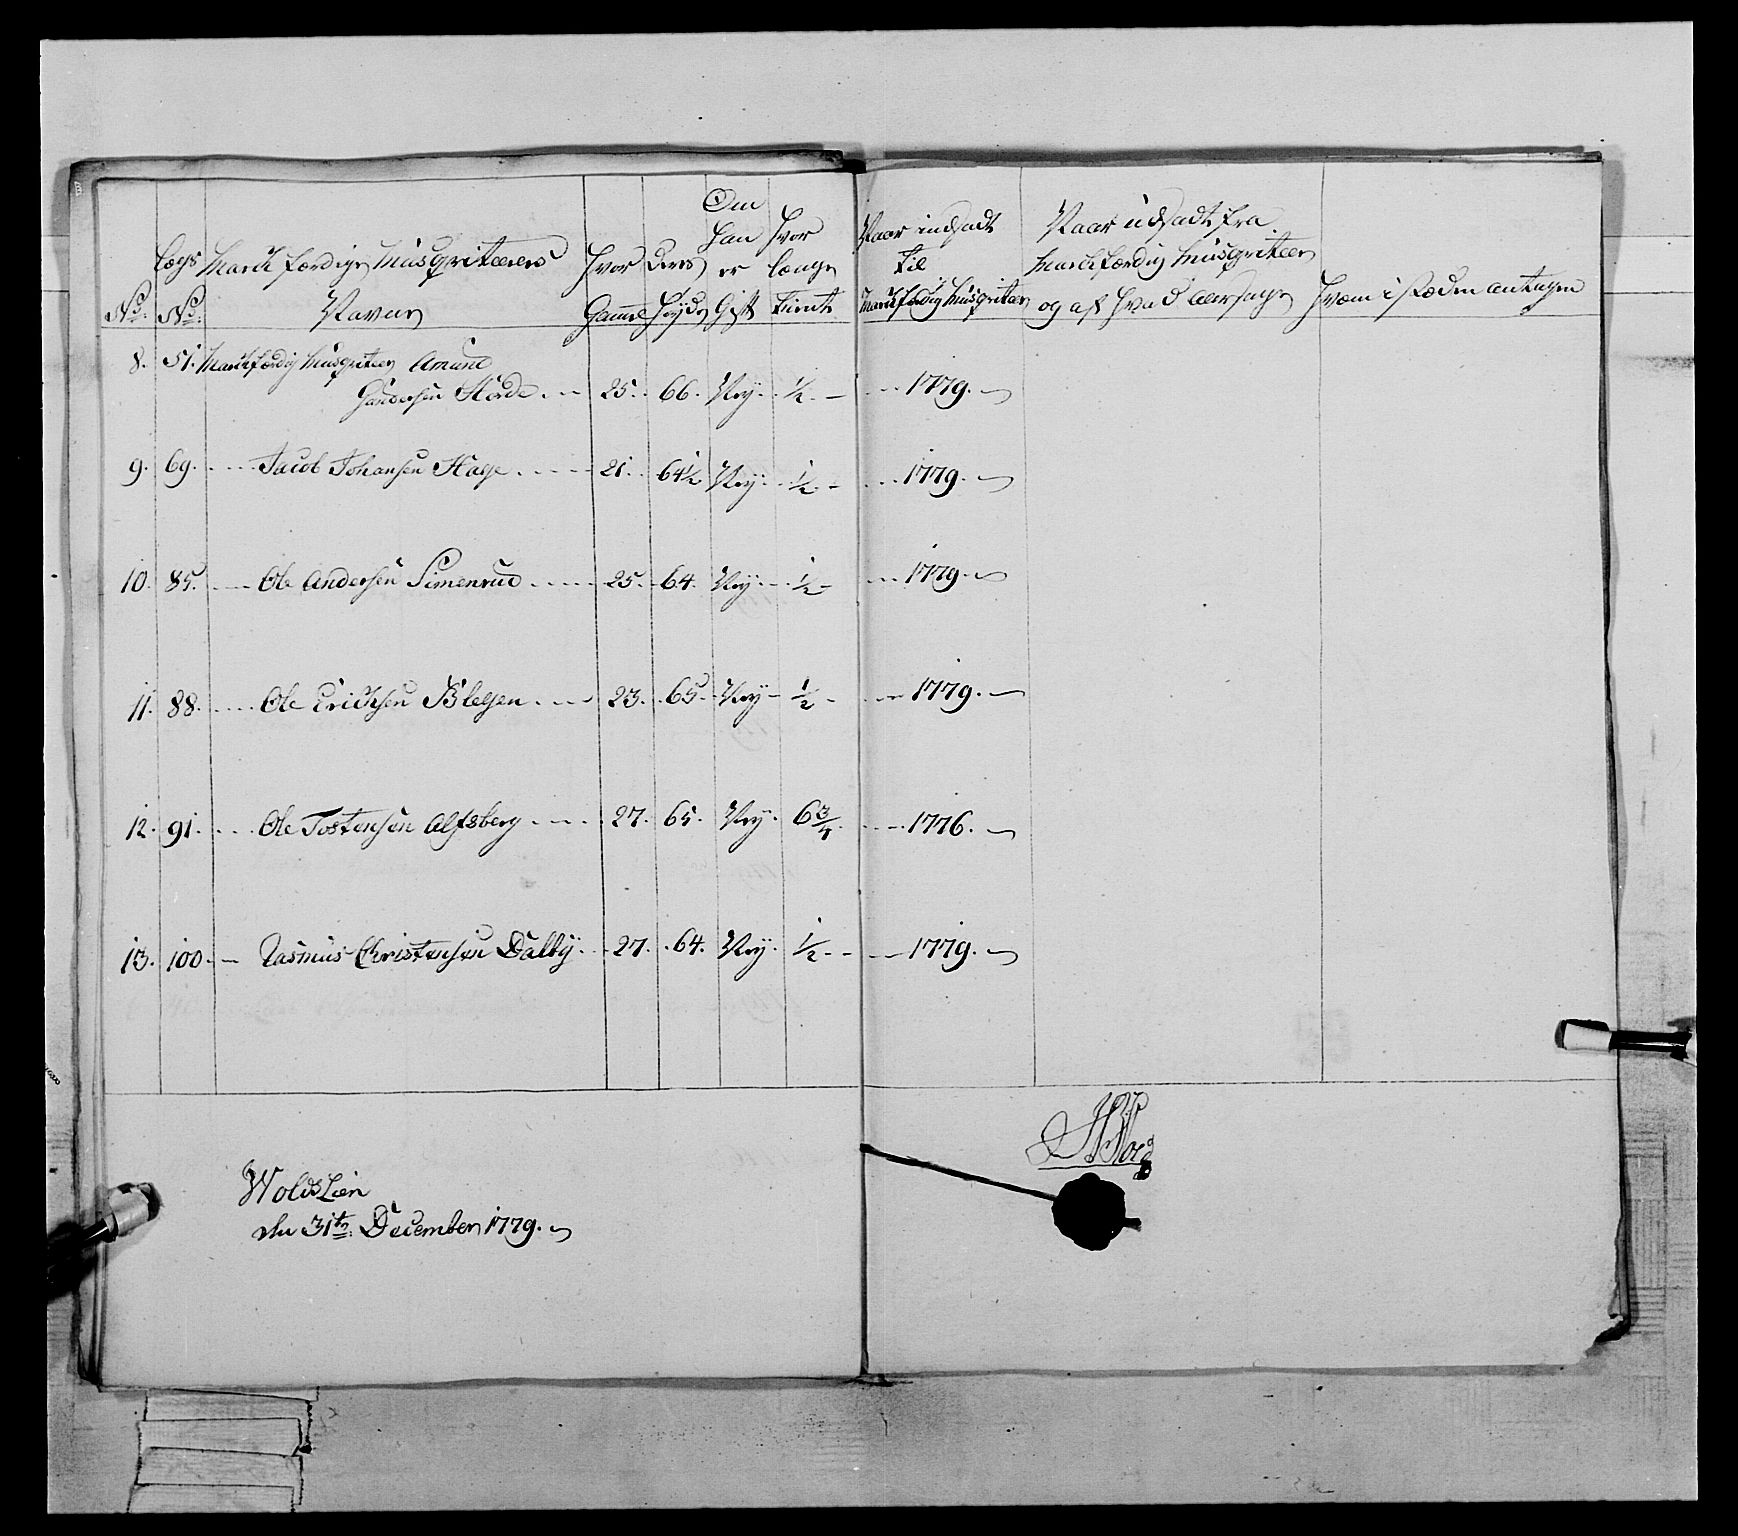 No: Lægs No: March færdige Musqvetterers Navne Hvor Gamel Deres Høyde Om han er Gift Hvor længe tient Naar indsadt til March færdig Musqveteer Naar udsadt fra march færdig Musqveteer og af hvad Aarsage Hvem i stæden antagen
8. 51. March færdig Musqveteer Amund
Gundersen Horde 25. 66. Ney ½ 1779.
9. 69. Jacob Johansen Hage 21. 64½ Ney ½ 1779.
10. 85. Ole Andersen Simenrud 25. 64. Ney ½ 1779.
11. 88. Ole Ericksen Blegen 23. 65. Ney ½ 1779.
12. 91. Ole Tostensen Alfsberg 27. 65. Ney 6¾ 1776.
13. 100. Rasmus Christensen Dalby 27. 64. Ney ½ 1779.
WoldsLien
den 31te: December 1779.